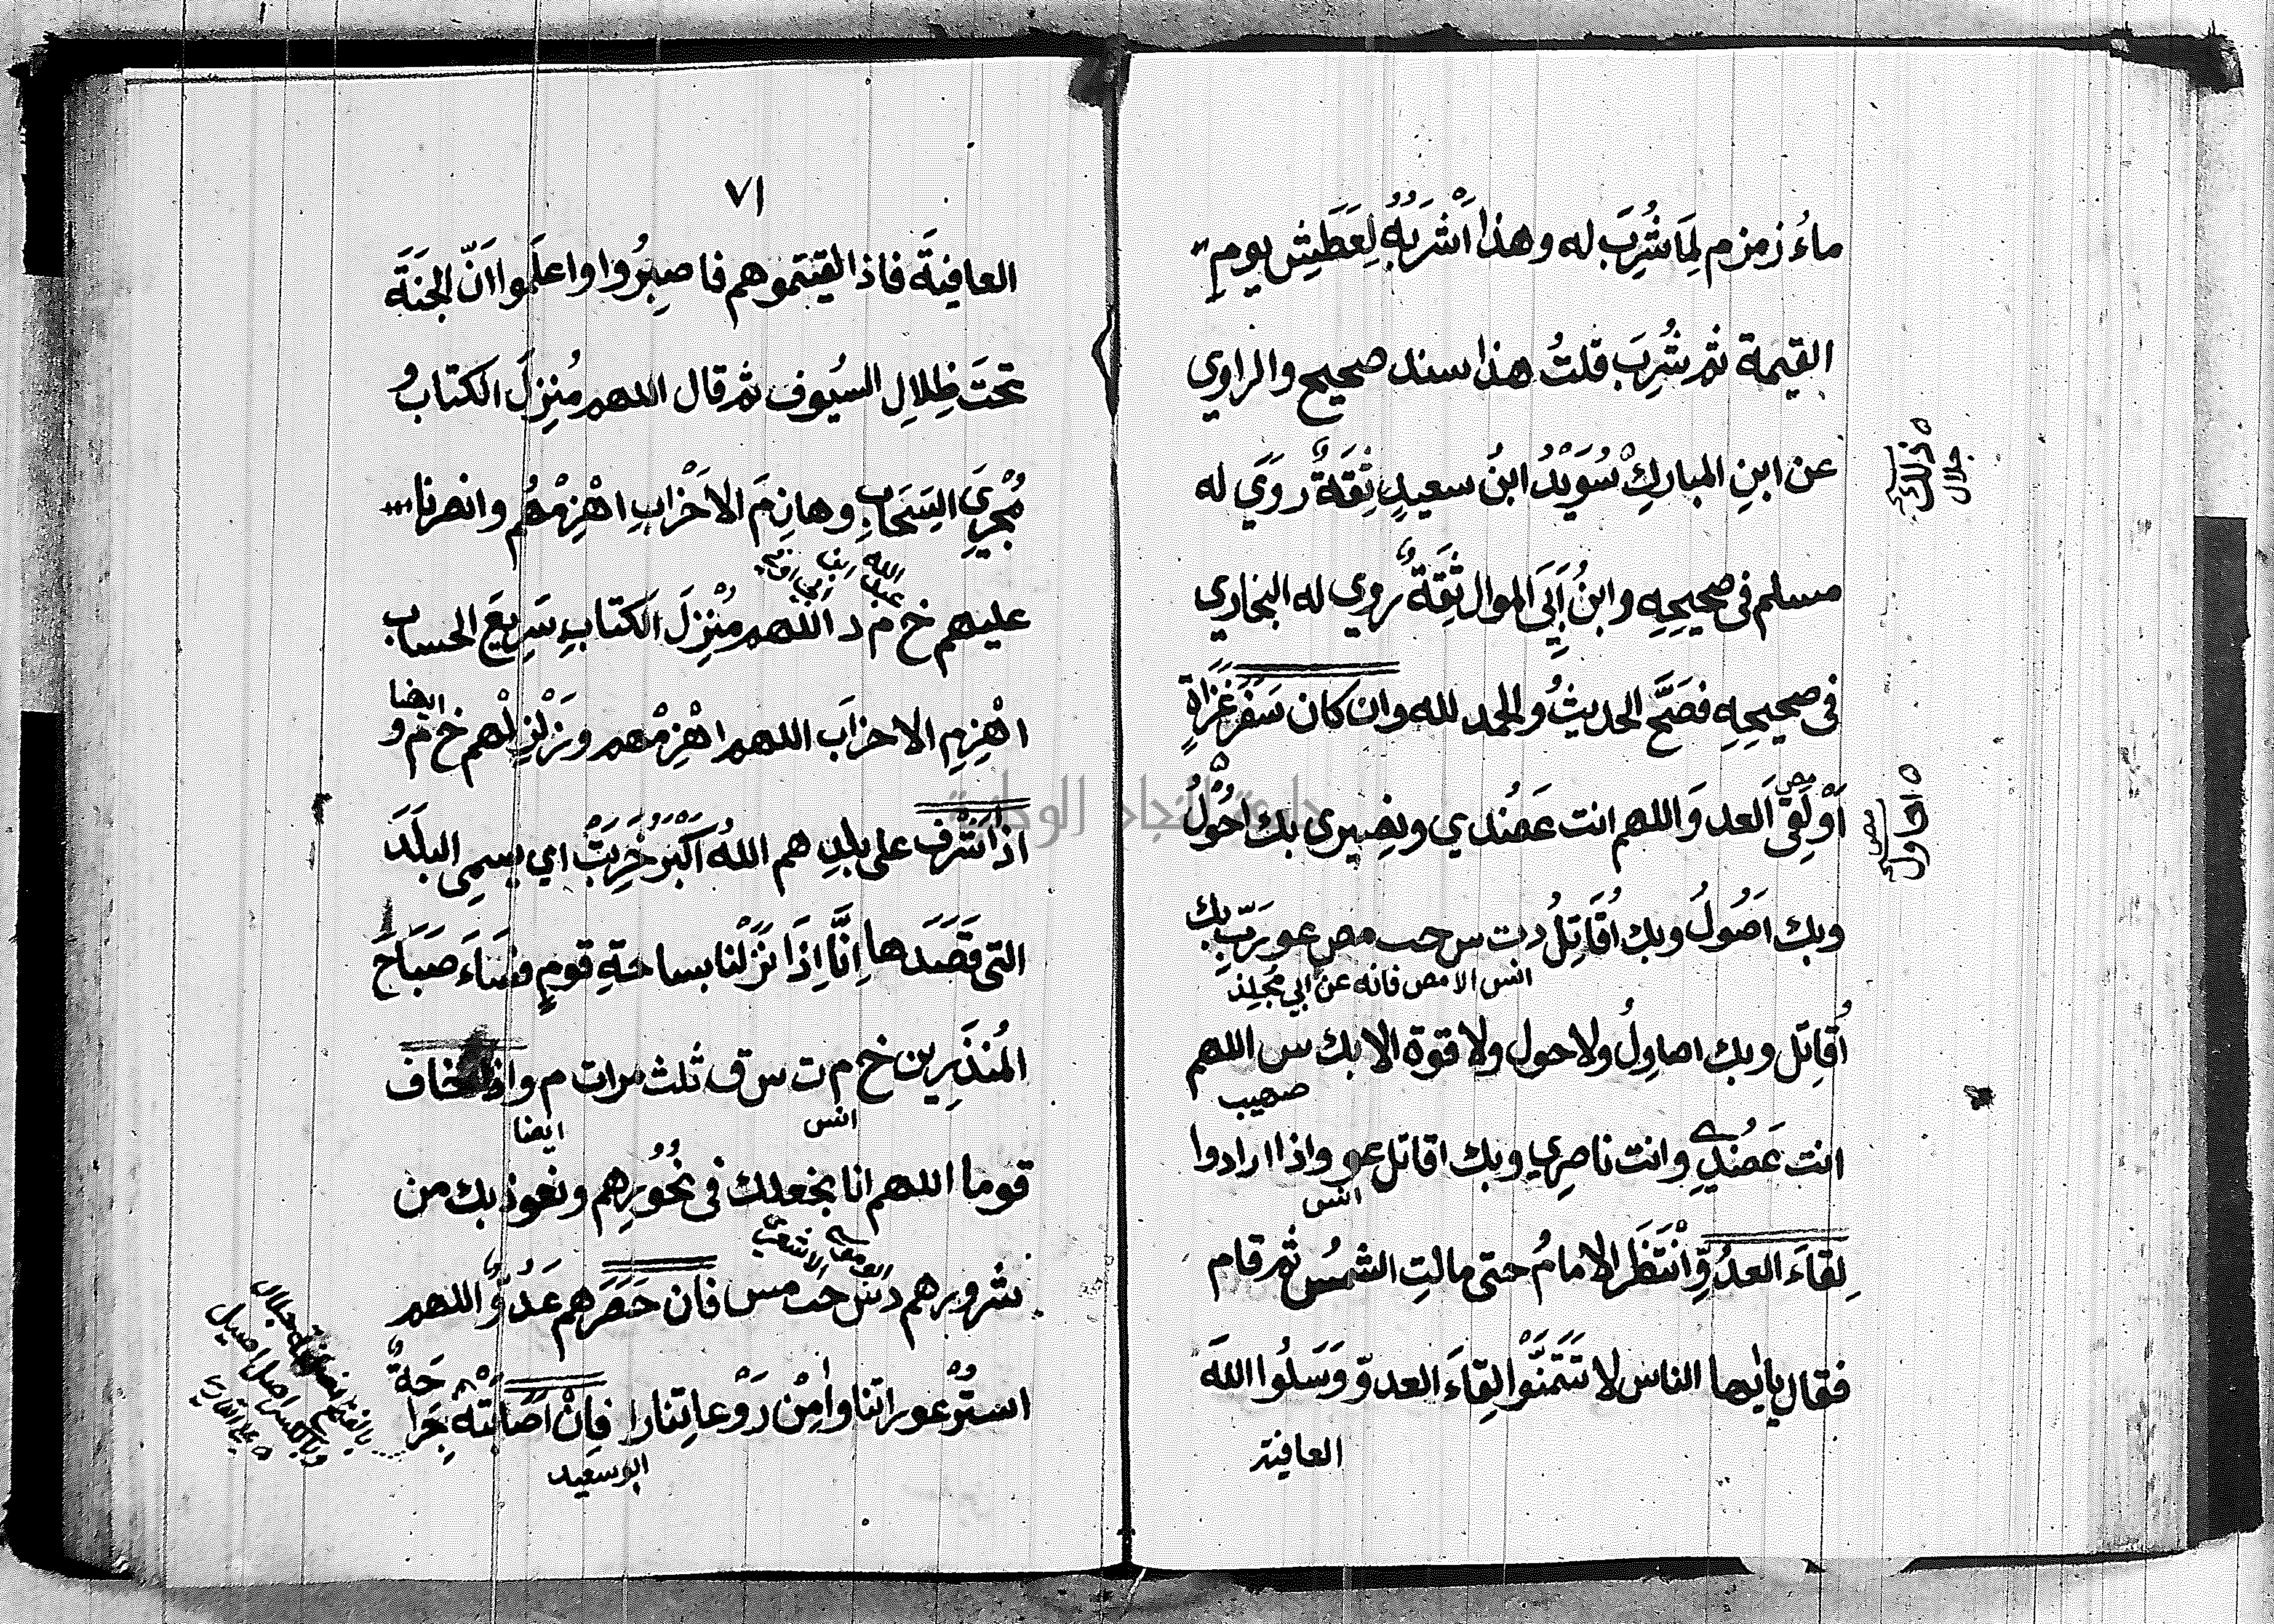 ماءُ زمزم لِمَا شُرِبَ له وهذا اَشْرَبُهُ لِعَطَشِ يومِ
القيمة ثم شُرِبَ قلتُ هذا سند صحيح والراوي
عن ابنِ المباركْ سُوَيْدُ ابنُ سعيدٍ ثِقَةٌ رَوَي له
مسلم فى صحيحِهِ وابنُ اَبِي الموال ثِقَةٌ روي له البخاري
فى صحيحِهِ فصَحَّ الحديثُ والحمد لله وان كان سَفَرَ غَزَاةٍ
اَوْ لَقِيَ العدوَّ اللهم انت عَضُدي ونصِيرى بك اَحُوْلُ
وبك اَصُولُ وبك اُقَاتِلُ د ت س حب مص عو رَبِّ بِك
انس الا مص فانه عن ابي مجلز
اُقاتل وبك اصاوِلُ ولا حول ولا قوة الا بك س اللهم
صهيب
انت عَضُدِي وانت ناصِرِي وبك اقاتل عو واذا ارادوا
انس
لِقاءَ العدُوِّ اِنْتَظَرَ الامامُ حتى مالتِ الشمسُ ثم قام
فقال يا ايها الناس لا تَتَمَنَّوْا لِقاءَ العدوّ وَسَلُوا اللهَ
العافية
ذلك
جلال
احاول
مص
٧١
العافيةَ فاذا لقيتموهم فاصبِرُوا واعلَموا اَنّ الجنَةَ
تحتَ ظِلالِ السيُوف ثم قال اللهم مُنزِلَ الكتاب و
مُجْرِيَ السَحَابِ وهازِمَ الاَحْزابِ اهْزِمْهُم وانصرنا
عبد الله ابن ابي اوفى
عليهم خ م د اللهم مُنْزِلَ الكتابِ سَرِيعَ الحساب
ايضا
اهْزِمِ الاحزابَ اللهم اهْزِمْهم وزَلْزِلْهم خ م و
اذا اَشْرَفَ على بلدِهم اللهُ اَكْبَرُ خَرِبَتْ اي يسمي البلَدَ
التى قَصَدَها اِنَّا اِذَا نَزَلْنا بساحةِ قومٍ فسَاءَ صَبَاحُ
المُنذَرِين خ م ت س ق ثلث مرات م واذا خاف
انس
ايضا
قوما اللهم انا نجعلك فى نُحُورِهم ونعوذ بك من
ابو موسى الاشعري
شرورهم د س حب مس فان حَصَرَهم عَدُوٌّ اللهم
استُرْ عوراتنا وآمِنْ رَوْعاتِنا را فاِنْ اَصَابَتْهُ جِرَا
حَةٌ
ابو سعيد